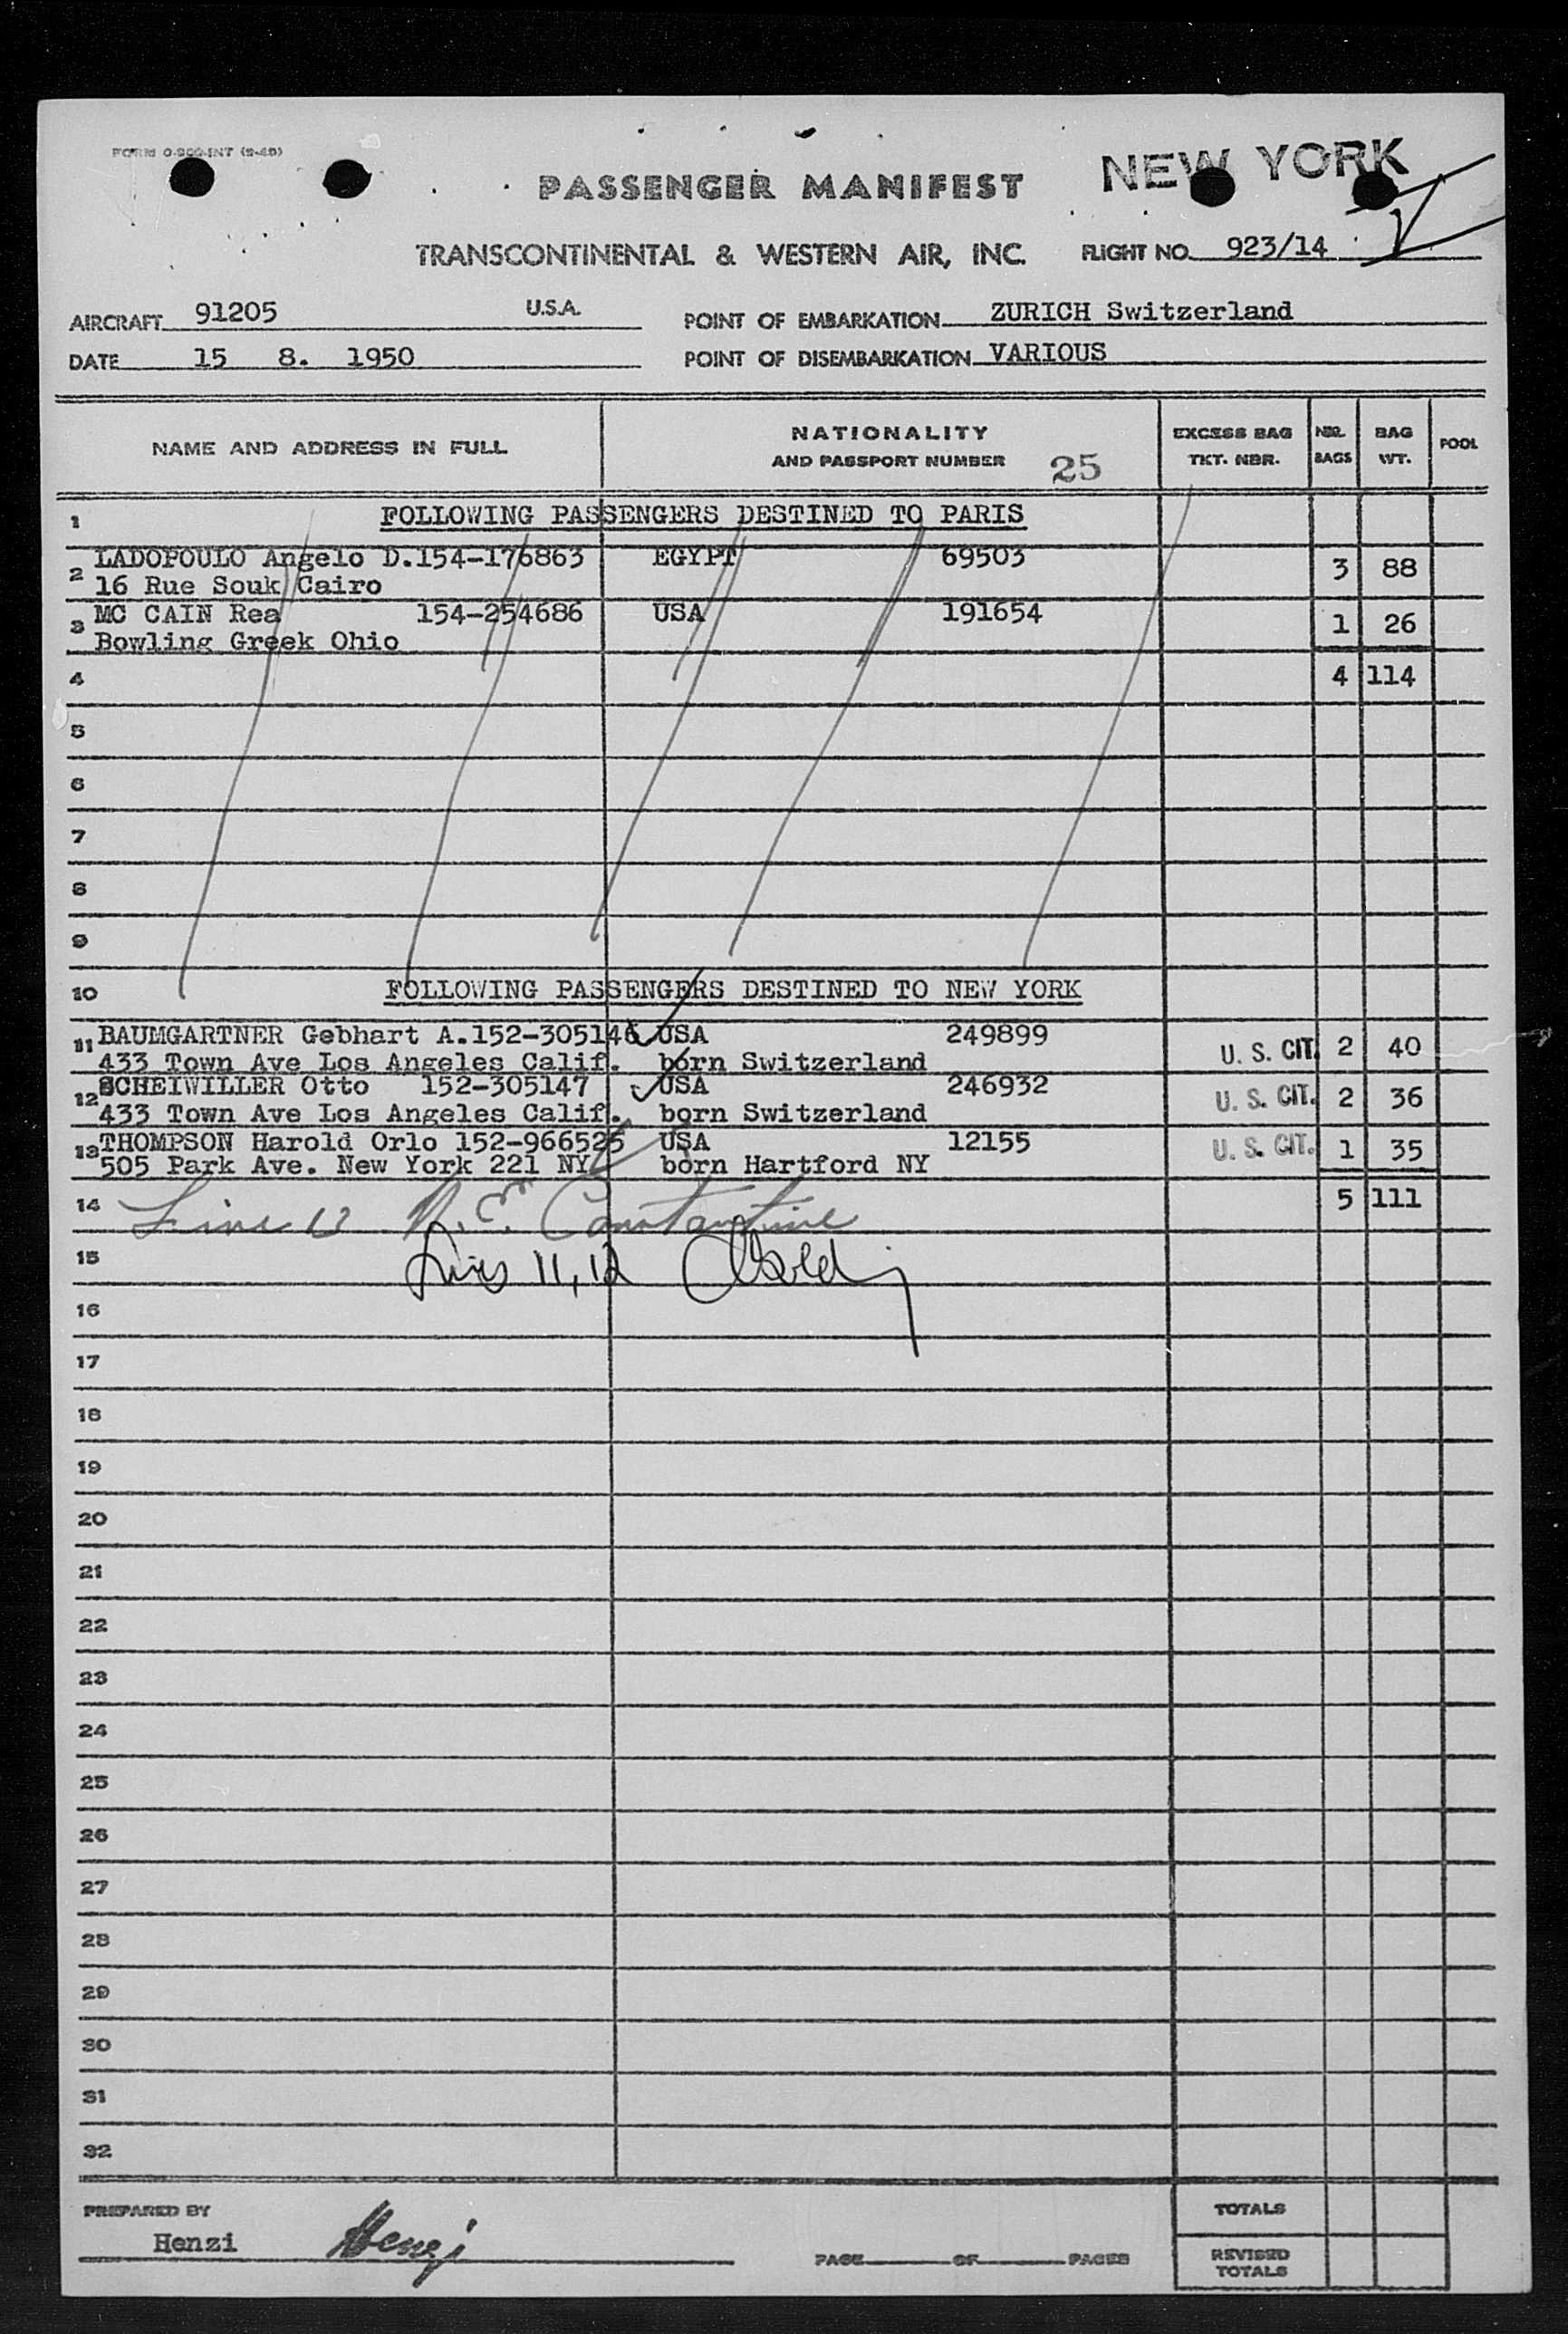 FORM 0-900-INT (9-49)
NEW YORK
PASSENGER MANIFEST
TRANSCONTINENTAL & WESTERN AIR, INC. FLIGHT NO. 923/14
AIRCRAFT 91205 U.S.A. POINT OF EMBARKATION ZURICH Switzerland
DATE 15 8. 1950 POINT OF DISEMBARKATION VARIOUS
NAME AND ADDRESS IN FULL NATIONALITY AND PASSPORT NUMBER 25 EXCESS BAG TKT. NBR. NBR. BAGS BAG WT. POOL
1 FOLLOWING PASSENGERS DESTINED TO PARIS
2 LADOPOULO Angelo D.154-176863 EGYPT 69503 3 88
16 Rue Souk Cairo
3 MC CAIN Rea 154-254686 USA 191654 1 26
Bowling Greek Ohio
4 4 114
5
6
7
8
9
10 FOLLOWING PASSENGERS DESTINED TO NEW YORK
11 BAUMGARTNER Gebhart A.152-305146 USA 249899 U. S. CIT. 2 40
433 Town Ave Los Angeles Calif. born Switzerland
12 SCHEIWILLER Otto 152-305147 USA 246932 U. S. CIT. 2 36
433 Town Ave Los Angeles Calif. born Switzerland
13 THOMPSON Harold Orlo 152-966525 USA 12155 U. S. CIT. 1 35
505 Park Ave. New York 221 NY born Hartford NY
14 Line 13 R. E. Constantine 5 111
15 Lines 11, 12
16
17
18
19
20
21
22
23
24
25
26
27
28
29
30
31
32
PREPARED BY TOTALS
Henzi Henzi PAGE OF PAGES REVISED TOTALS